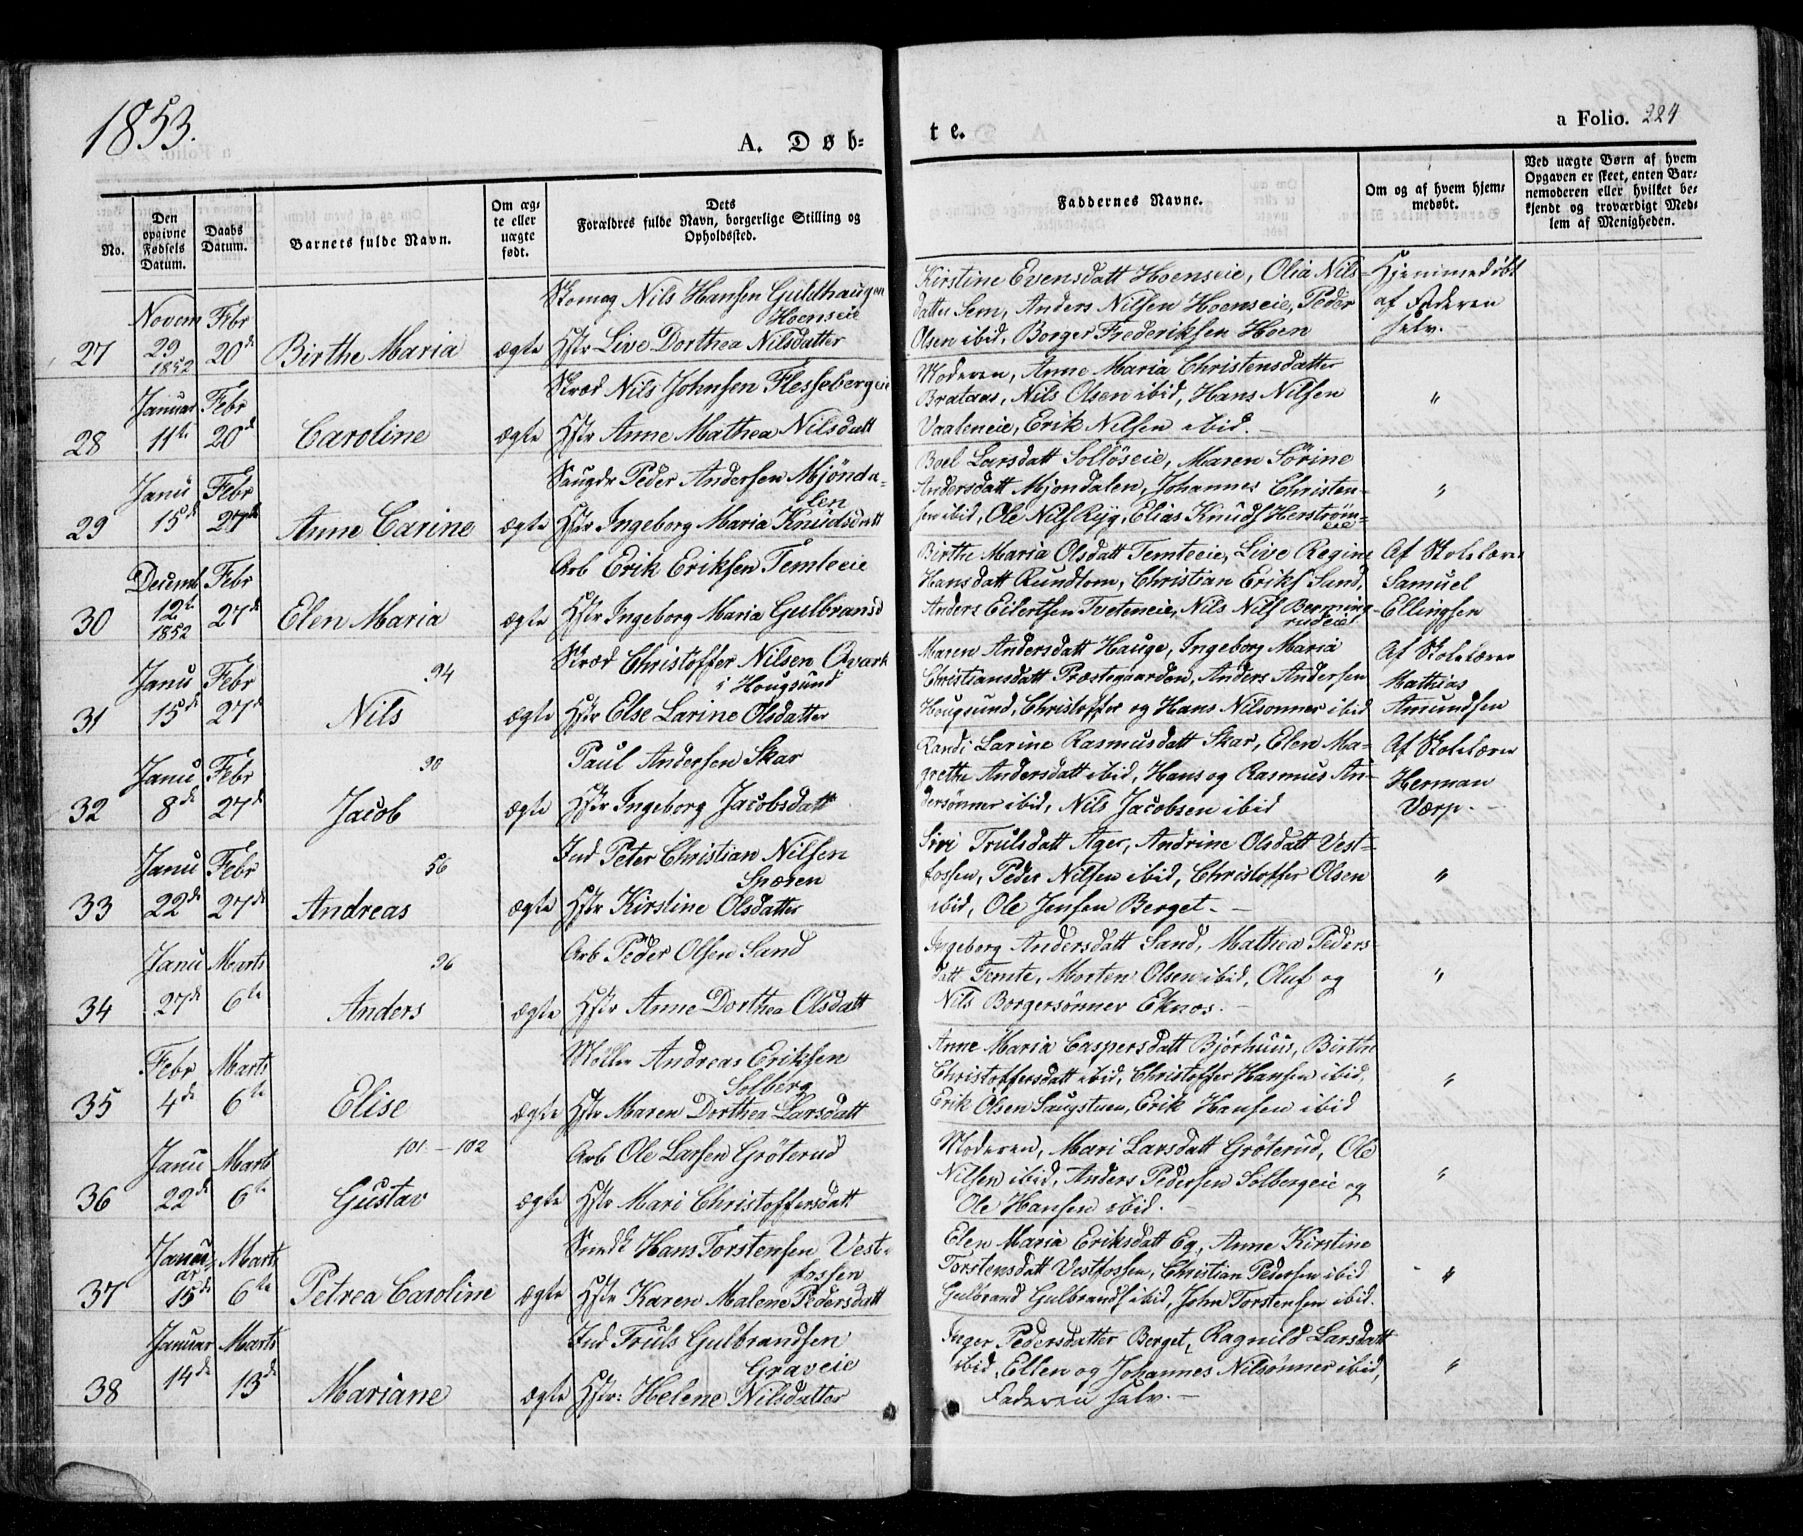 1853.
A. Døb-
te.
a Folio. 224
No.
Den opgivne Fødsels Datum.
Daabs Datum.
Barnets fulde Navn.
Om ægte eller uægte født.
Dets Forældres fulde Navn, borgerlige Stilling og Opholdssted.
Faddernes Navne.
Om og af hvem hjemmedøbt.
Ved uægte Børn af hvem Opgaven er skeet, enten Barnemoderen eller hvilket bekjendt og troværdigt Medlem af Menigheden.
27
Novem 29 1852
Febr 20d
Birthe Maria
ægte
Skomag Nils Hansen Guldhaugen
Hoenseie
Hstr Live Dorthea Nilsdatter
Kirstine Evensdatt Hoenseie, Olia Nils-
datter Sem, Anders Nilsen Hoenseie, Peder
Olsen ibid, Borger Frederiksen Hoen
Hjemmedøbt
af Faderen
selv.
28
Januar 11te
Febr 20d
Caroline
ægte
Skræd Nils Johnsen Flessebergeie
Hstr Anne Mathea Nilsdatt
Moderen, Anne Maria Christensdatter
Brataas, Nils Olsen ibid, Hans Nilsen
Vaaleneie, Erik Nilsen ibid.
"
29
Janu 15d
Febr 27de
Anne Carine
ægte
Saugdr Peder Andersen Mjönda-
len
Hstr Ingeborg Maria Knudsdatt
Boel Larsdatt Sollöseie, Maren Sörine
Andersdatt Mjondalen, Johannes Christen-
sen ibid, Ole Nils Ryg, Elias Knuds Herström-
eie
"
30
Decemb 12te 1852
Febr 27d
Elen Maria
ægte
Arb Erik Eriksen Temteeie
Hstr Ingeborg Maria Gulbransd
Birthe Maria Olsdatt Temteeie, Live Regine
Hansdatt Rundtom, Christian Eriks Sand,
Anders Eilertsen Tveteneie, Nils Nils Berming-
rudeie
Af Skolelærer
Samuel
Ellingsen
31
Janu 15d
Febr 27d
94
Nils
ægte
Skræd Christoffer Nilsen Qvark
i Hougsund
Hstr Else Larine Olsdatter
Maren Andersdatt Hauge, Ingeborg Maria
Christiansdatt Præstegaarden, Anders Andersen
Hougsund, Christoffer og Hans Nilsonner ibid
Af Skolelærer
Mathias
Amundsen
32
Janu 8d
Febr 27d
90
Jacob
ægte
Paul Andersen Skar
Hstr Ingeborg Jacobsdatt
Randi Larine Rasmusdatt Skar, Elen Ma-
grethe Andersdatt ibid, Hans og Rasmus An-
dersønner ibid, Nils Jacobsen ibid
Af Skolelærer
Herman
Værp.
33
Janu 22de
Febr 27de
56
Andreas
ægte
Ind Peter Christian Nilsen
Spæren
Hstr Kirstine Olsdatter
Siri Trulsdatt Ager, Andrine Olsdatt Vest-
fossen, Peder Nilsen ibid, Christoffer Olsen
ibid, Ole Jensen Berget.
"
34
Janu 27de
Marts 6te
96
Anders
ægte
Arb Peder Olsen Sand
Hstr Anne Dorthea Olsdatt
Ingeborg Andersdatt Sand, Mathea Peders
datt Temte, Morten Olsen ibid, Oluf og
Nils Borgersönner Eknos.
"
35
Febr 4de
Marts 6te
Elise
ægte
Möller Andreas Eriksen
Solberg
Hstr Maren Dorthea Larsdatt
Anne Maria Caspersdatt Björhuus, Birthe
Christoffersdatt ibid, Christoffer Hansen ibid,
Erik Olsen Saugstuen, Erik Hansen ibid
"
36
Janu 22de
Marts 6te
101 - 102
Gustav
ægte
Arb Ole Larsen Gröterud
Hstr Mari Christoffersdatt
Moderen, Mari Larsdatt Gröterud, Ole
Nilsen ibid, Anders Pedersen Solbergeie og
Ole Hansen ibid.
"
37
Januar 15de
Marts 6te
Petrea Caroline
ægte
Smedt Hans Torstensen Vest-
fossen
Hstr Karen Malene Pedersdatt
Elen Maria Eriksdatt Eg, Anne Kirstine
Torstensdatt Vestfossen, Christian Pedersen ibid
Gulbrand Gulbrands ibid, John Torstensen ibid.
"
38
Januar 14de
Marts 13de
Mariane
ægte
Ind Truls Gulbrandsen
Graveie
Hstr: Helene Nilsdatter
Inger Pedersdatter Berget, Ragnild Larsdatt
ibid, Ellen og Johannes Nilsønner ibid,
Faderen selv.
"